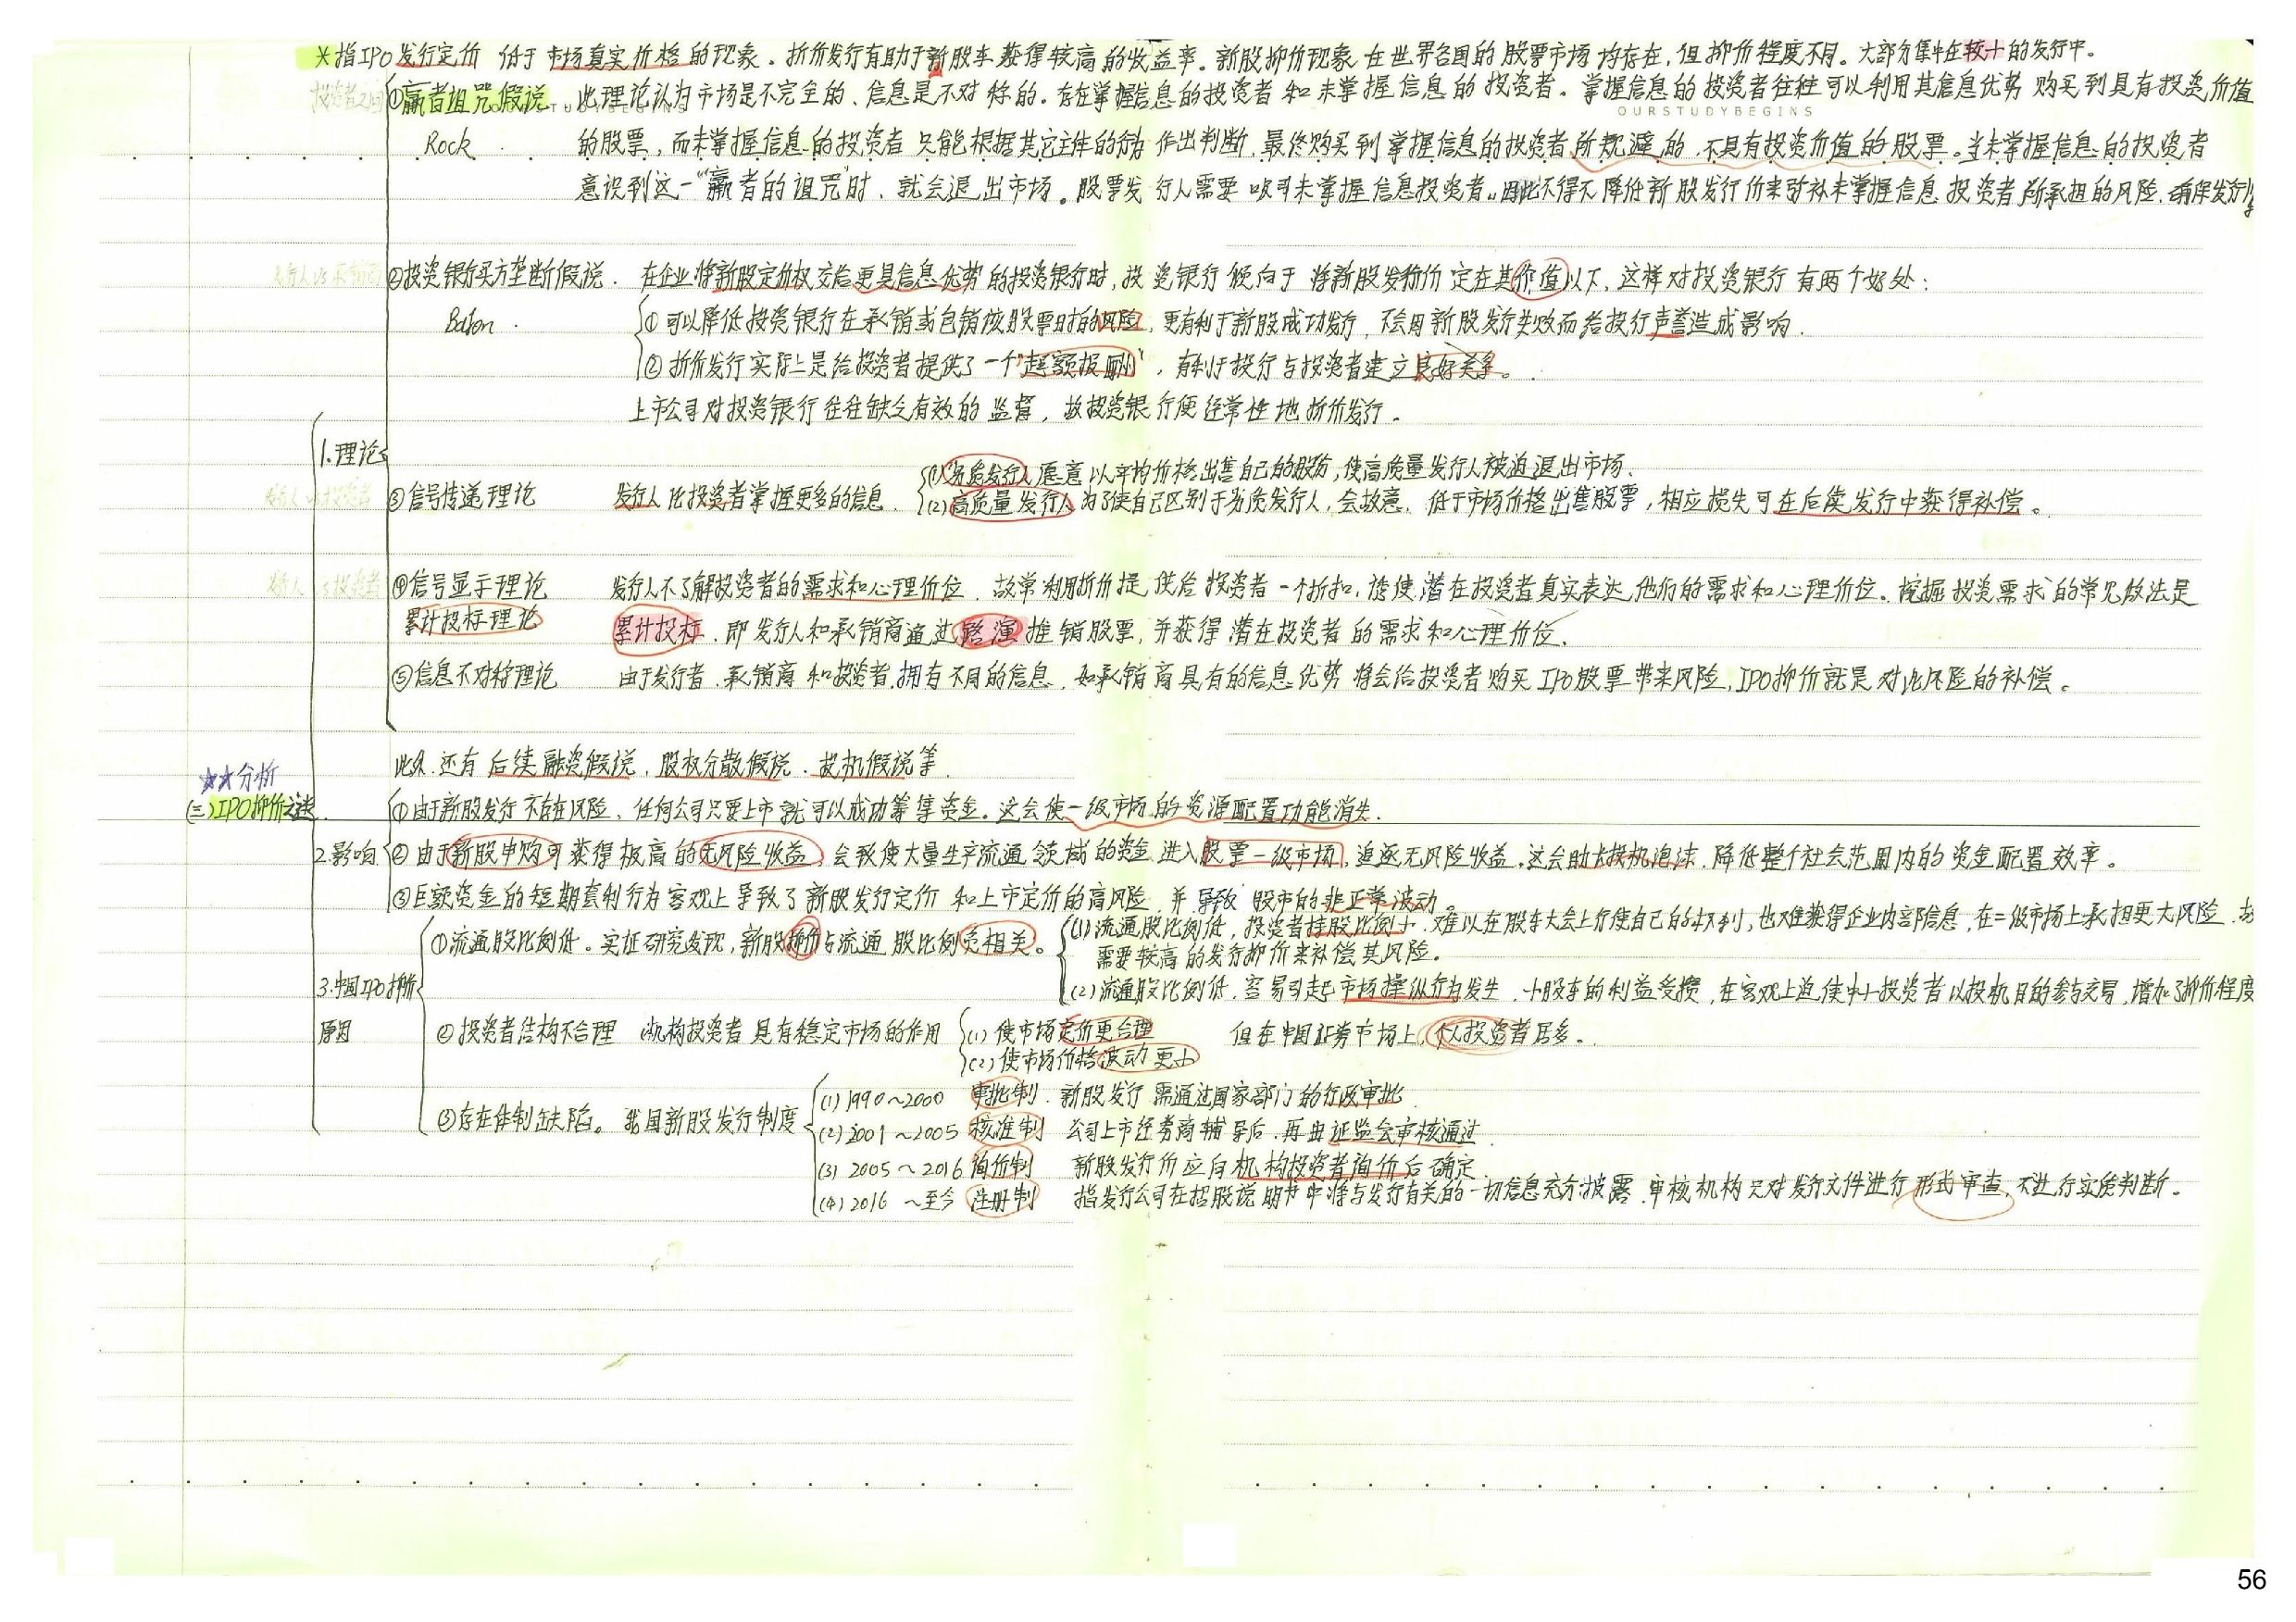 *指IPO发行定价 低于市场真实价格的现象。折价发行有助于新股东获得较高的收益率。新股抑价现象在世界各国的股票市场均存在,但抑价程度不同。大部分集中在较小的发行中。
投资者之间 ①赢者诅咒假说 此理论认为市场是不完全的、信息是不对称的。存在掌握信息的投资者和未掌握信息的投资者。掌握信息的投资者往往可以利用其信息优势 购买到具有投资价值
OURSTUDYBEGINS
Rock 的股票,而未掌握信息的投资者只能根据其它主体的行为作出判断,最终购买到掌握信息的投资者所规避的、不具有投资价值的股票。当未掌握信息的投资者
意识到这一"赢者的诅咒"时,就会退出市场。股票发行人需要吸引未掌握信息投资者。因此不得不降低新股发行价来弥补未掌握信息投资者所承担的风险,确保发行
②投资银行买方垄断假说. 在企业将新股定价权交给更具信息优势的投资银行时,投资银行倾向于将新股发行价定在其价值以下,这样对投资银行有两个好处:
Baron. ①可以降低投资银行在承销或包销该股票时的风险,更有利于新股成功发行,不会因新股发行失败而给投行声誉造成影响.
②折价发行实际上是给投资者提供了一个"超额报酬",有利于投行与投资者建立良好关系。
上市公司对投资银行往往缺乏有效的监督,故投资银行便经常性地折价发行。
1.理论
③信号传递理论 发行人比投资者掌握更多的信息. (1)劣质发行人愿意以平均价格出售自己的股份,使高质量发行人被迫退出市场.
(2)高质量发行人为了使自己区别于劣质发行人,会故意低于市场价格出售股票,相应损失可在后续发行中获得补偿。
④信号显示理论 发行人不了解投资者的需求和心理价位.故常利用折价提供给投资者一个折扣,诱使潜在投资者真实表达他们的需求和心理价位。挖掘投资需求的常见做法是
累计投标理论 累计投标.即发行人和承销商通过路演推销股票,并获得潜在投资者的需求和心理价位.
⑤信息不对称理论 由于发行者、承销商和投资者拥有不同的信息.如承销商具有的信息优势将会给投资者购买IPO股票带来风险,IPO抑价就是对此风险的补偿。
此外,还有后续融资假说、股权分散假说、投机假说等
★★分析
(三)IPO抑价之谜
①由于新股发行不存在风险,任何公司只要上市就可以成功筹集资金。这会使一级市场的资源配置功能消失.
2.影响 ②由于新股申购可获得极高的无风险收益,会致使大量生产流通领域的资金进入股票一级市场,追逐无风险收益.这会助长投机泡沫,降低整个社会范围内的资金配置效率。
③巨额资金的短期套利行为客观上导致了新股发行定价和上市定价的高风险,并导致股市的非正常波动。
①流通股比例低。实证研究发现,新股抑价与流通股比例负相关。 (1)流通股比例低,投资者持股比例小.难以在股东大会上行使自己的权利,也难获得企业内部信息,在二级市场上承担更大风险.故
需要较高的发行抑价来补偿其风险。
3.中国IPO抑价原因
(2)流通股比例低,容易引起市场操纵行为发生.小股东的利益受损,在客观上迫使中小投资者以投机目的参与交易,增加了抑价程度
②投资者结构不合理 机构投资者具有稳定市场的作用 (1)使市场定价更合理 但在中国证券市场上,个人投资者居多。
(2)使市场价格波动更小
③存在体制缺陷。我国新股发行制度 (1)1990~2000 审批制.新股发行需通过国家部门的行政审批.
(2)2001~2005 核准制 公司上市经券商辅导后,再由证监会审核通过.
(3)2005~2016 询价制 新股发行价应向机构投资者询价后确定
(4)2016~至今 注册制 指发行公司在招股说明书中将与发行有关的一切信息充分披露.审核机构只对发行文件进行形式审查,不进行实质判断。
56